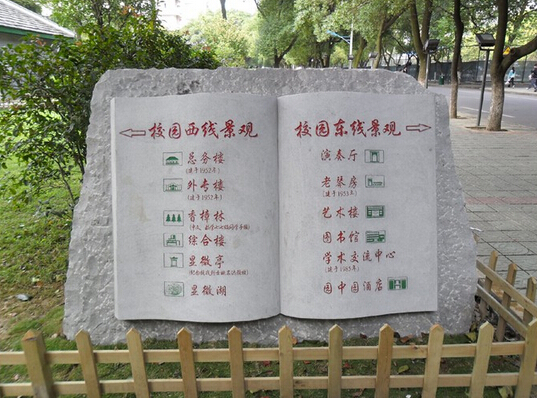 校园西线景观
总务楼
(建于1952年)
外专楼
(建于1952年)
香樟林
综合楼
显微亭
显微湖
校园东线景观
演奏厅
老琴房
(建于1953年)
艺术楼
图书馆
学术交流中心
园中园酒店